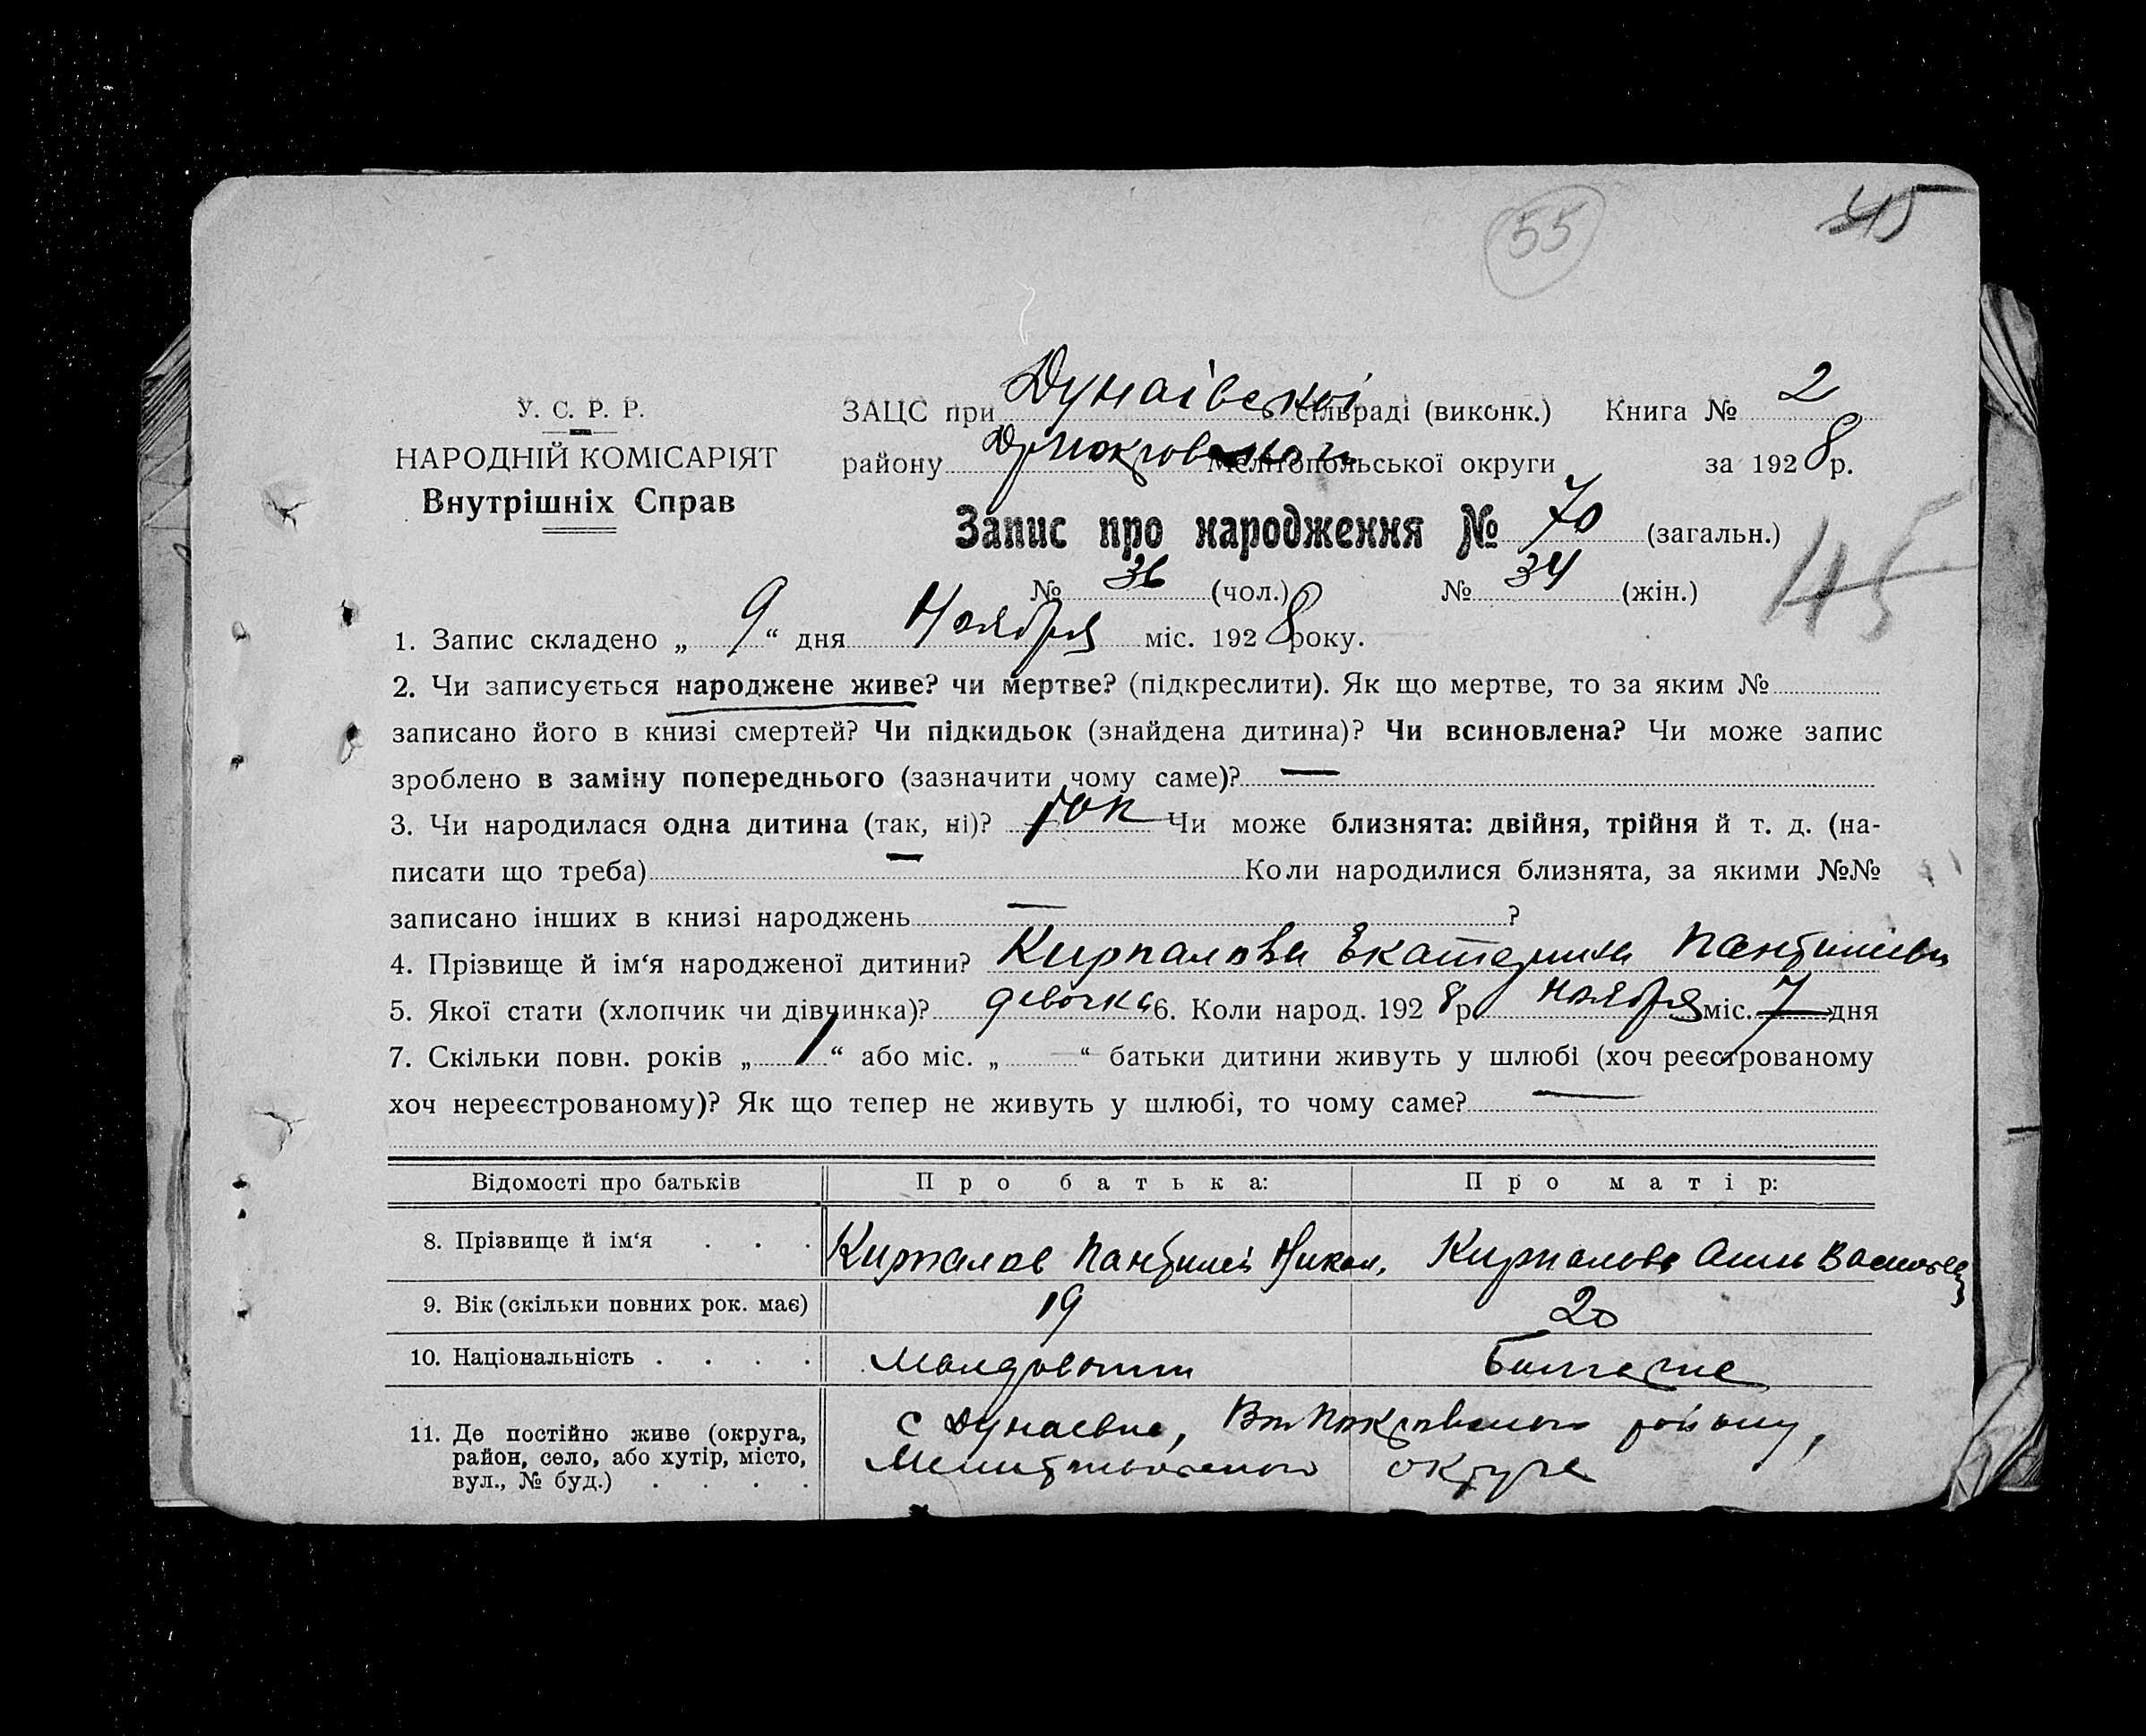 55 45
У. С. Р. Р.
НАРОДНІЙ КОМІСАРІЯТ
Внутрішніх Справ
ЗАЦС при Дунаівськоі сільраді (виконк.) Книга № 2
району Мелітопольської округи за 1928 р.
Запис про народження № 70 (загальн.)
№ 36 (чол.) № 34 (жін.)
45
1. Запис складено „ 9 “ дня Ноября міс. 1928 року.
2. Чи записується народжене живе? чи мертве? (підкреслити). Як що мертве, то за яким №
записано його в книзі смертей? Чи підкидьок (знайдена дитина)? Чи всиновлена? Чи може запис
зроблено в заміну попереднього (зазначити чому саме)? —
3. Чи народилася одна дитина (так, ні)? Чи може близнята: двійня, трійня й т. д. (на-
писати що треба) — Коли народилися близнята, за якими №№
записано інших в книзі народжень — ?
4. Прізвище й ім‘я народженої дитини? Кирпалова Екатерина
5. Якої стати (хлопчик чи дівчинка)? девочка 6. Коли народ. 1928 р. ноября міс. 7 дня
7. Скільки повн. років „ 1 “ або міс. „ — “ батьки дитини живуть у шлюбі (хоч реєстрованому
хоч нереєстрованому)? Як що тепер не живуть у шлюбі, то чому саме? —
Відомості про батьків Про батька: Про матір:
8. Прізвище й ім‘я . . . Кирпалов Пантилей Никол. Кирпалова Анна
9. Вік (скільки повних рок. має) 19 20
10. Національність . . . .
11. Де постійно живе (округа, с Дунаевка, району,
район, село, або хутір, місто, округа
вул., № буд.) . . . .